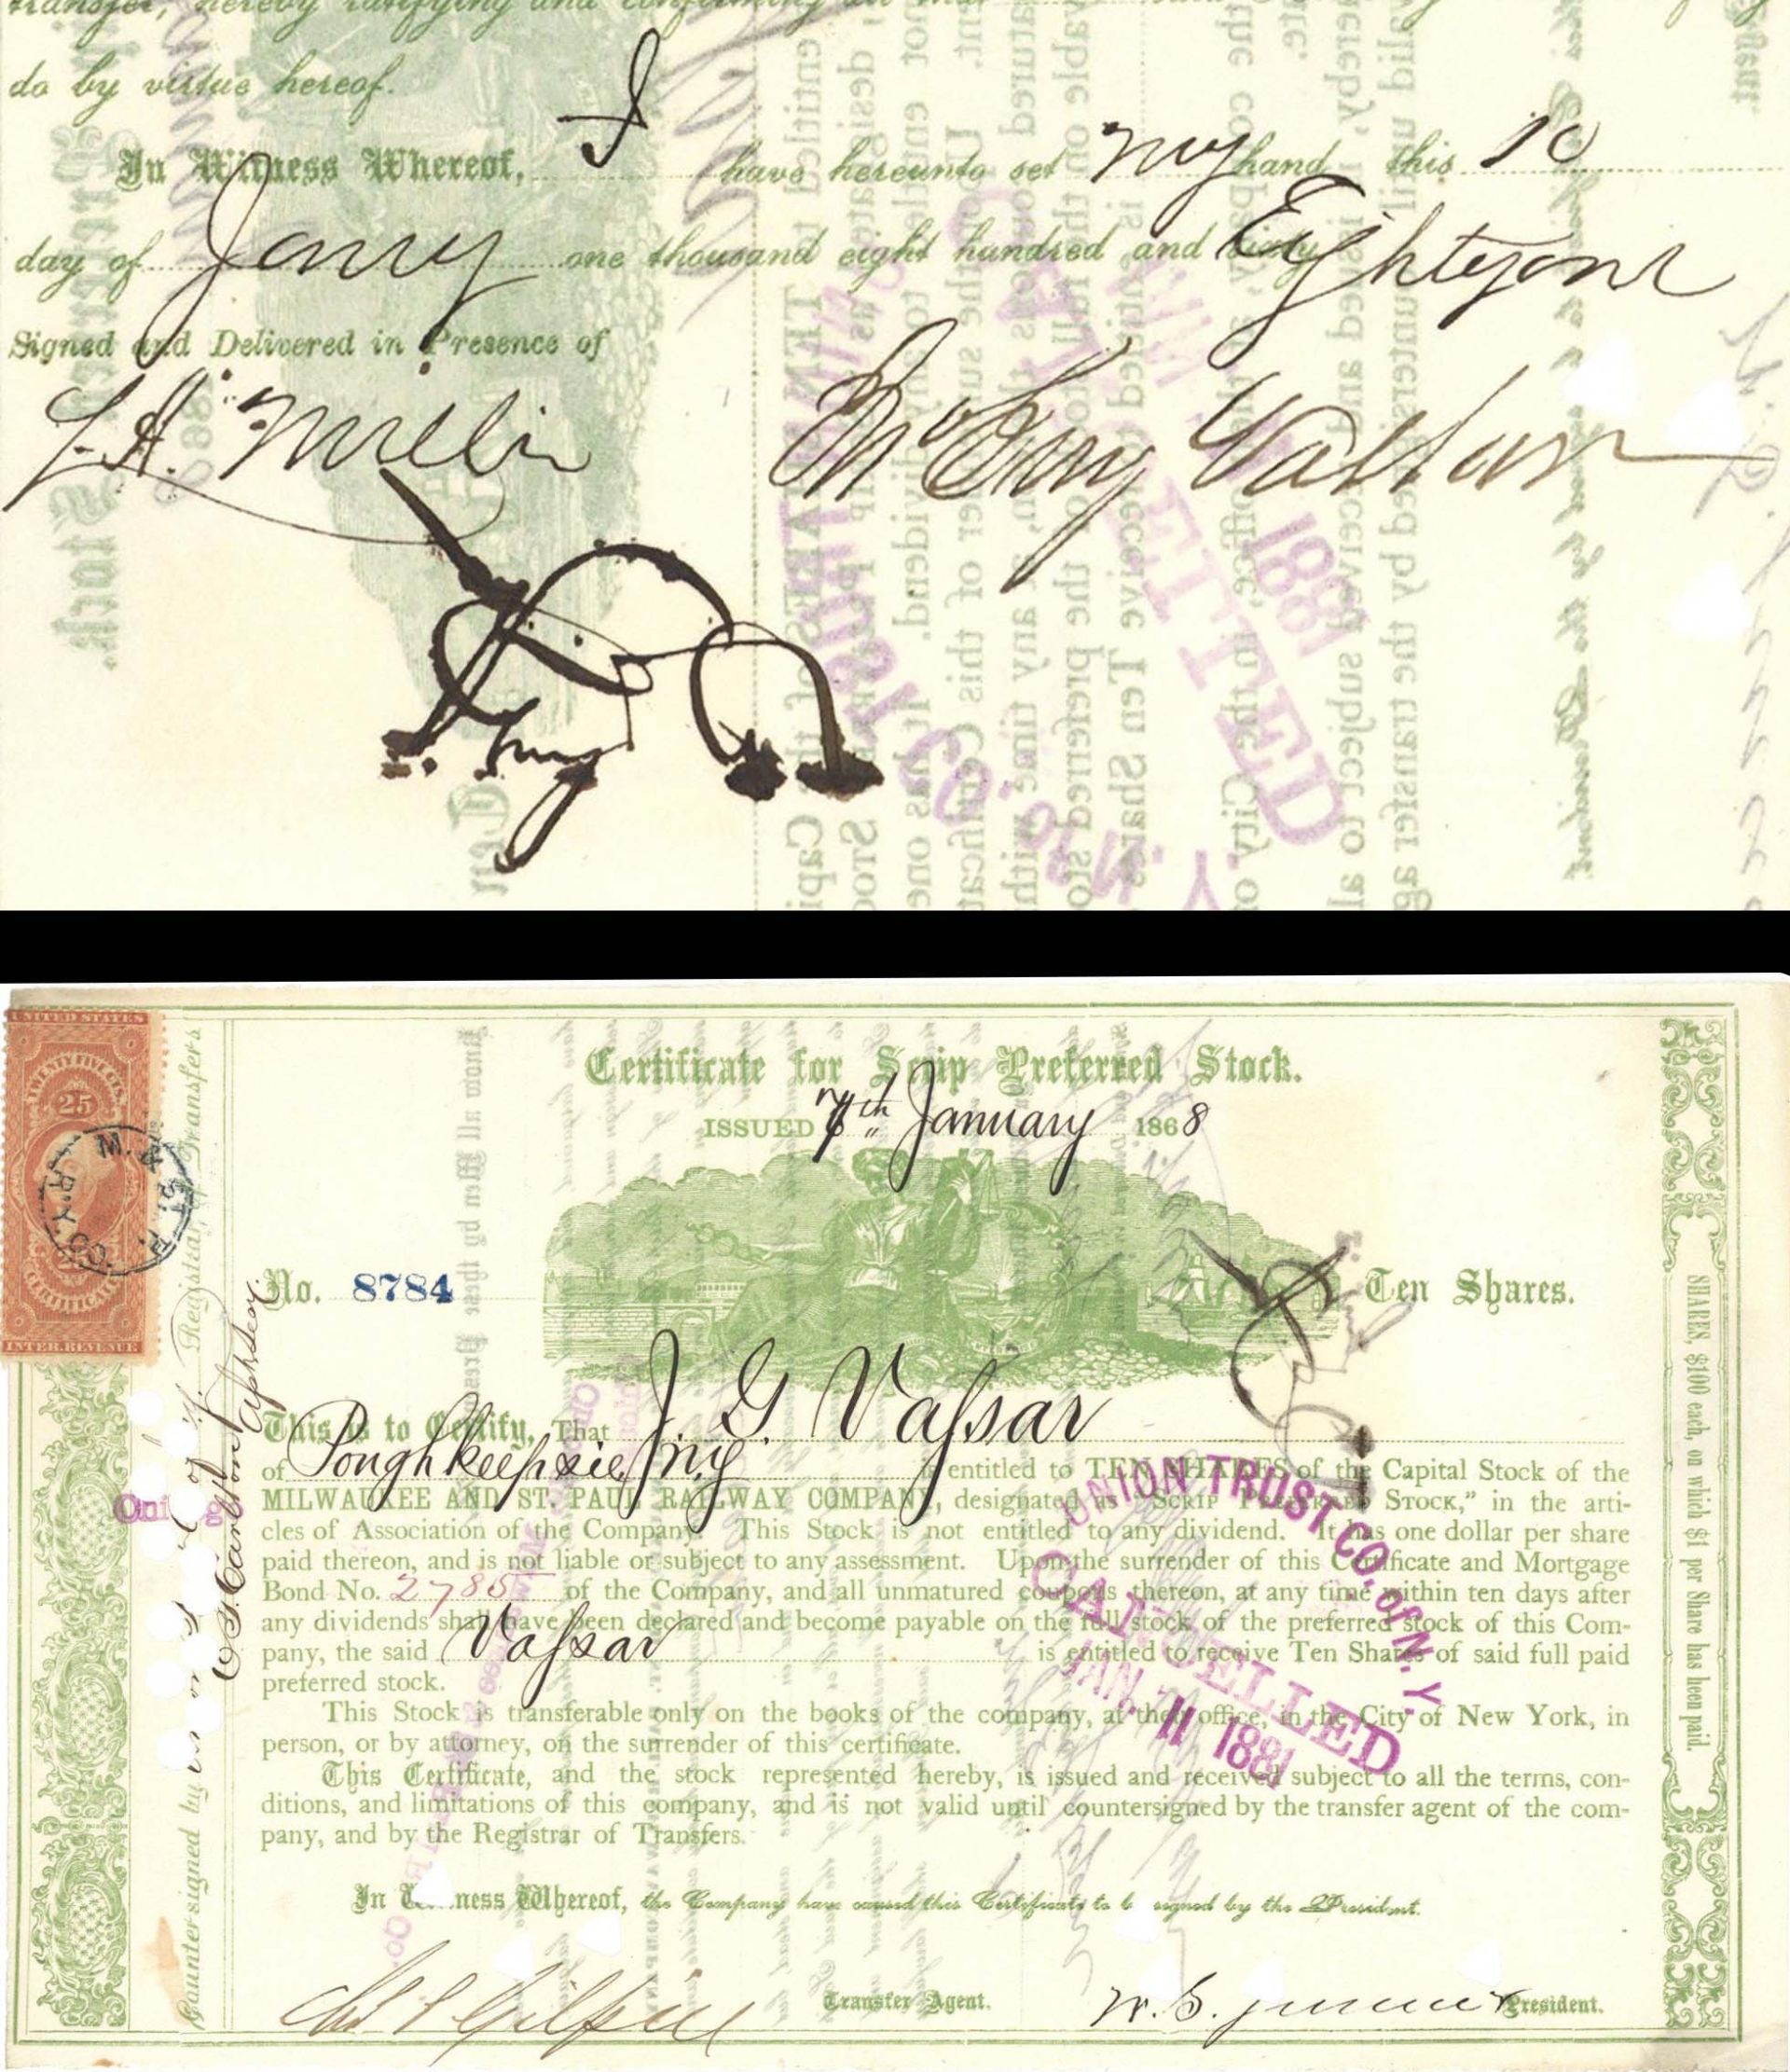 transfer, hereby ratifying and confirming all that
do by virtue hereof.
In Witness Whereof, I have hereunto set my hand this 10
day of Jany one thousand eight hundred and sixty Eightyone
Signed and Delivered in Presence of
Vassar
UNITED STATES
TWENTY FIVE CTS.
25
CERTIFICATE
INTER. REVENUE
M. & ST. P. R.Y. CO.
Certificate for Scrip Preferred Stock.
ISSUED 7th January 1868
No. 8784
Ten Shares.
This is to Certify, That J. G. Vassar
of Poughkeepsie, N.Y. is entitled to TEN SHARES of the Capital Stock of the
MILWAUKEE AND ST. PAUL RAILWAY COMPANY, designated as "SCRIP PREFERRED STOCK," in the arti-
cles of Association of the Company. This Stock is not entitled to any dividend. It has one dollar per share
paid thereon, and is not liable or subject to any assessment. Upon the surrender of this Certificate and Mortgage
Bond No. 2785 of the Company, and all unmatured coupons thereon, at any time within ten days after
any dividends shall have been declared and become payable on the full stock of the preferred stock of this Com-
pany, the said Vassar is entitled to receive Ten Shares of said full paid
preferred stock.
This Stock is transferable only on the books of the company, at their office, in the City of New York, in
person, or by attorney, on the surrender of this certificate.
This Certificate, and the stock represented hereby, is issued and received subject to all the terms, con-
ditions, and limitations of this company, and is not valid until countersigned by the transfer agent of the com-
pany, and by the Registrar of Transfers.
In Witness Whereof, the Company have caused this Certificate to be signed by the President.
Transfer Agent.
President.
UNION TRUST CO. of N.Y.
CANCELLED
JAN. 11 1881
Countersigned by
Registrar of Transfers
SHARES, $100 each, on which $1 per Share has been paid.